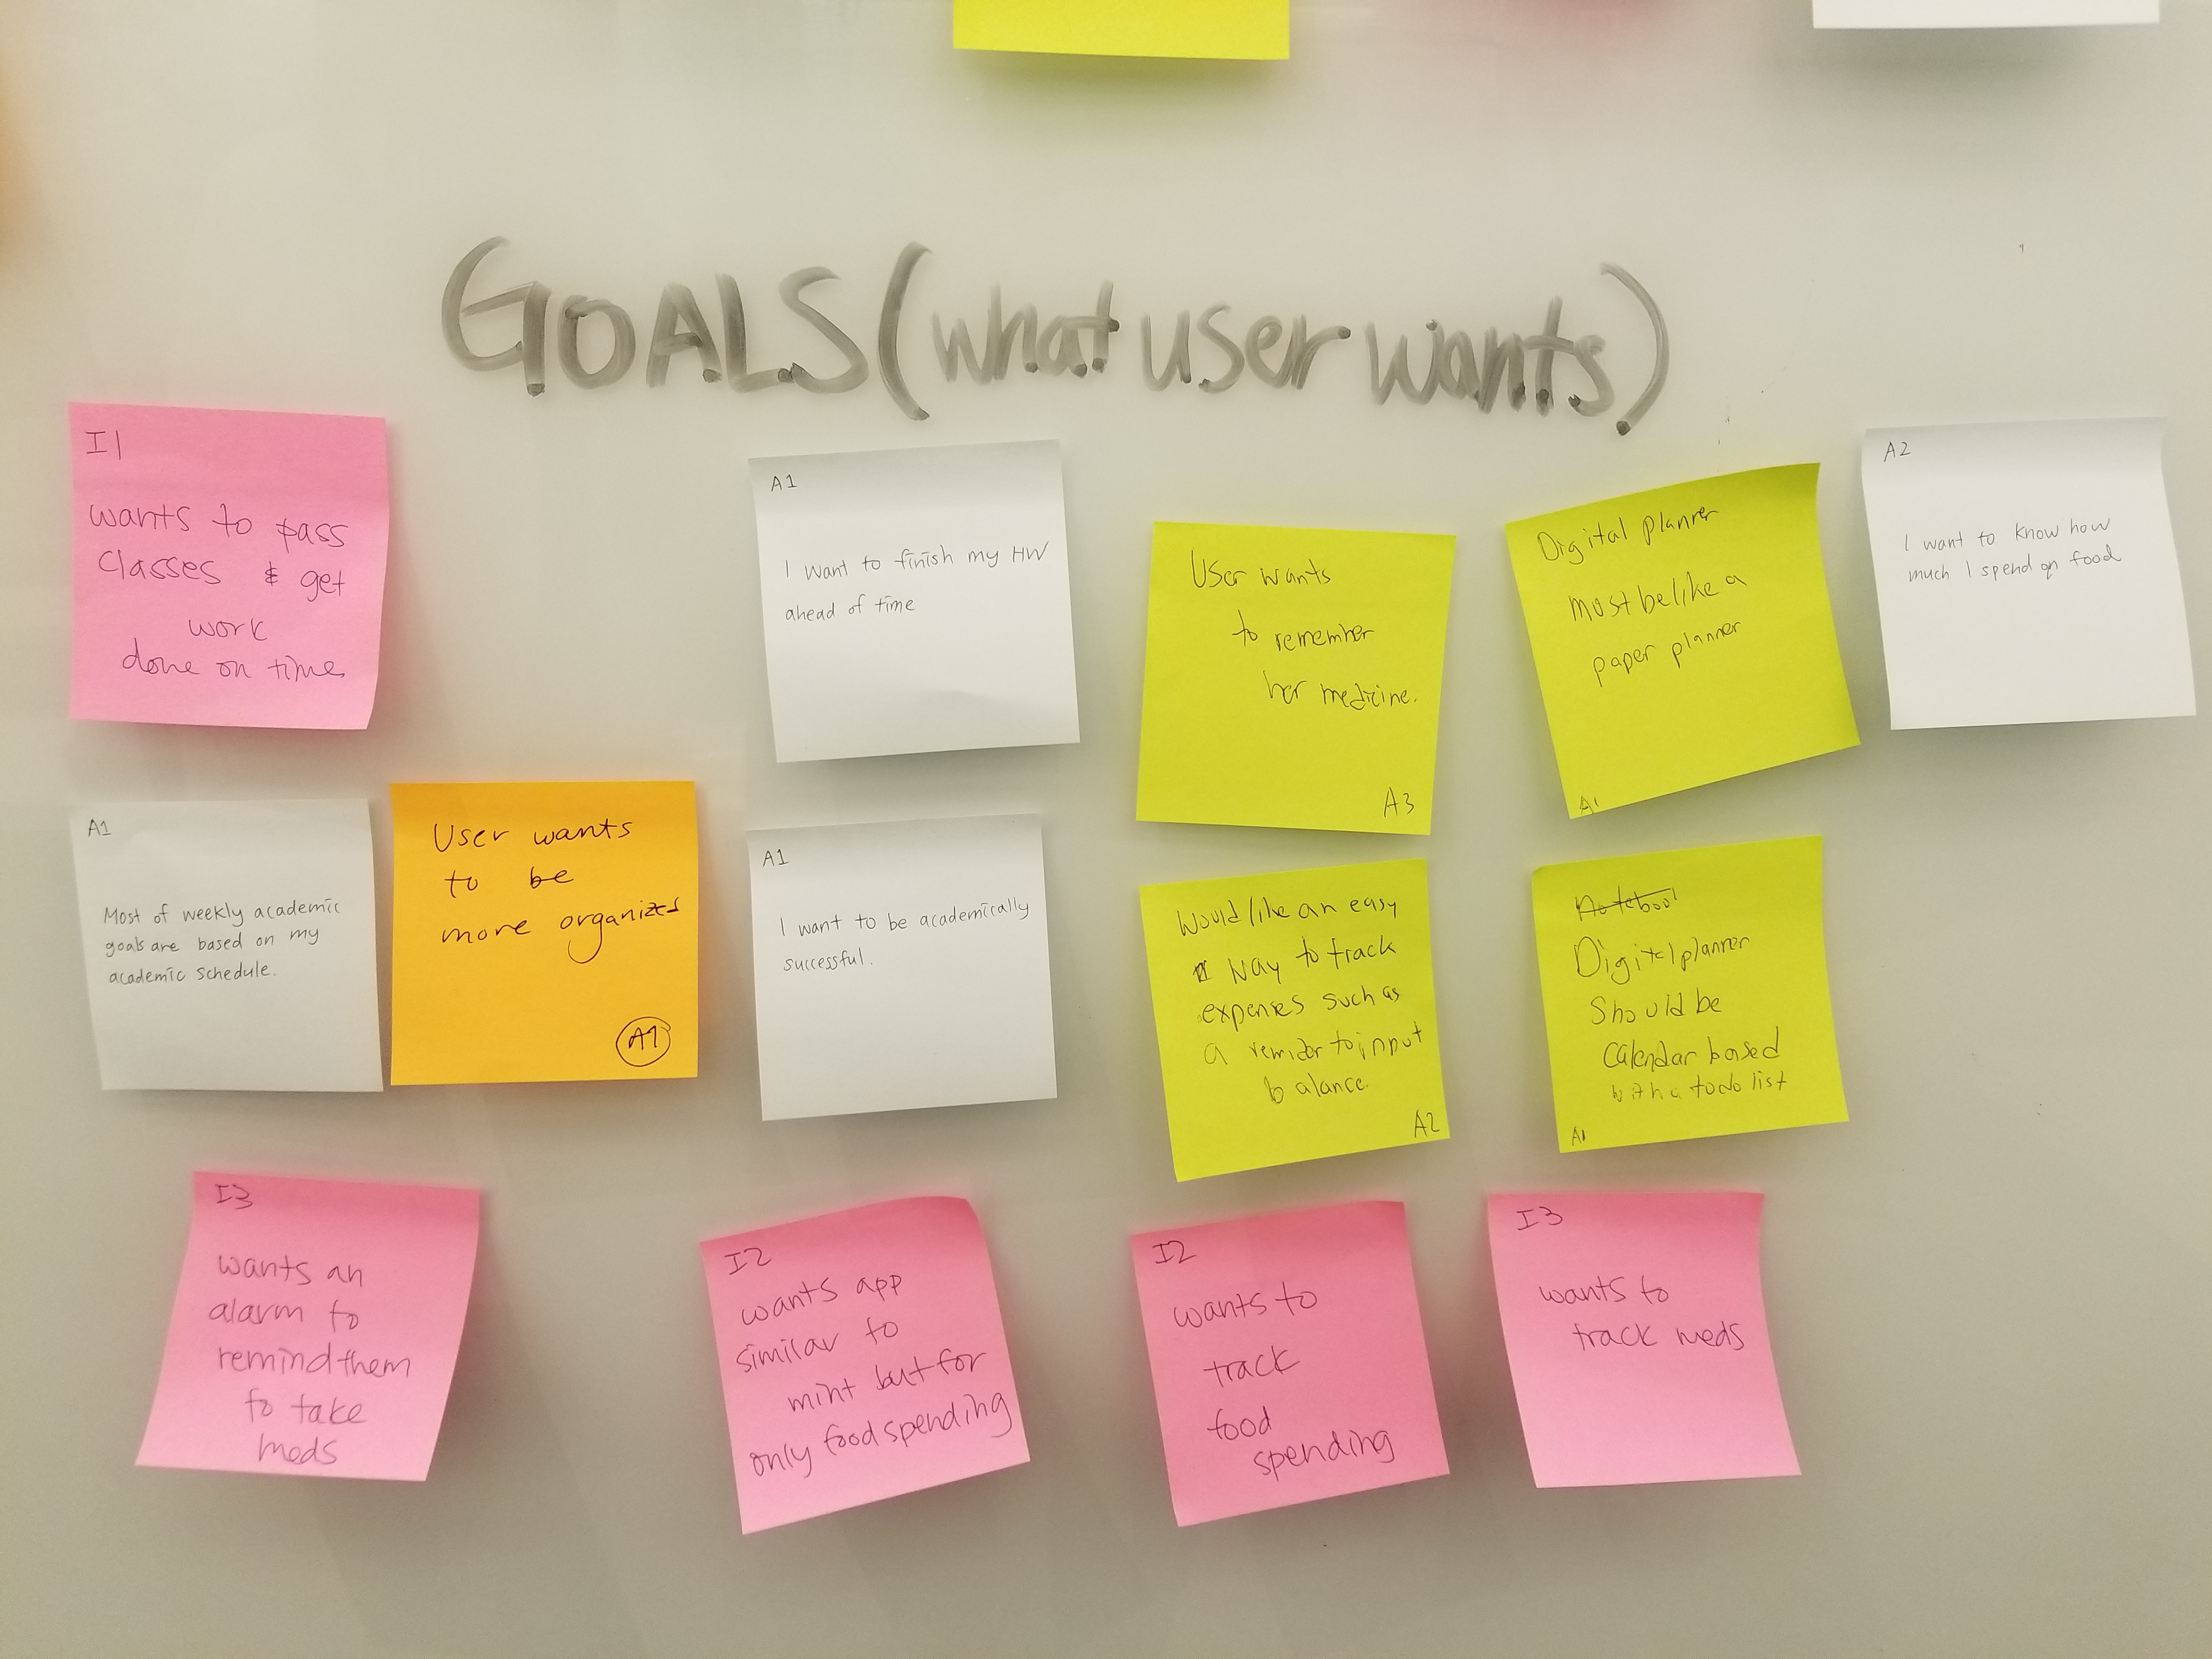 GOALS (what user wants)
I1
wants to pass
classes & get
work
done on time
A1
I want to finish my HW
ahead of time
User wants
to remember
her medicine.
A3
Digital planner
must be like a
paper planner
A1
A2
I want to know how
much I spend on food
A1
Most of weekly academic
goals are based on my
academic schedule.
User wants
to be
more organized
A1
A1
I want to be academically
successful.
Would like an easy
way to track
expenses such as
a remider to input
balance.
A2
Digital planner
Should be
Calendar based
with a todo list
A1
I3
wants an
alarm to
remind them
to take
meds
I2
wants app
similar to
mint but for
only food spending
I2
wants to
track
food
spending
I3
wants to
track meds